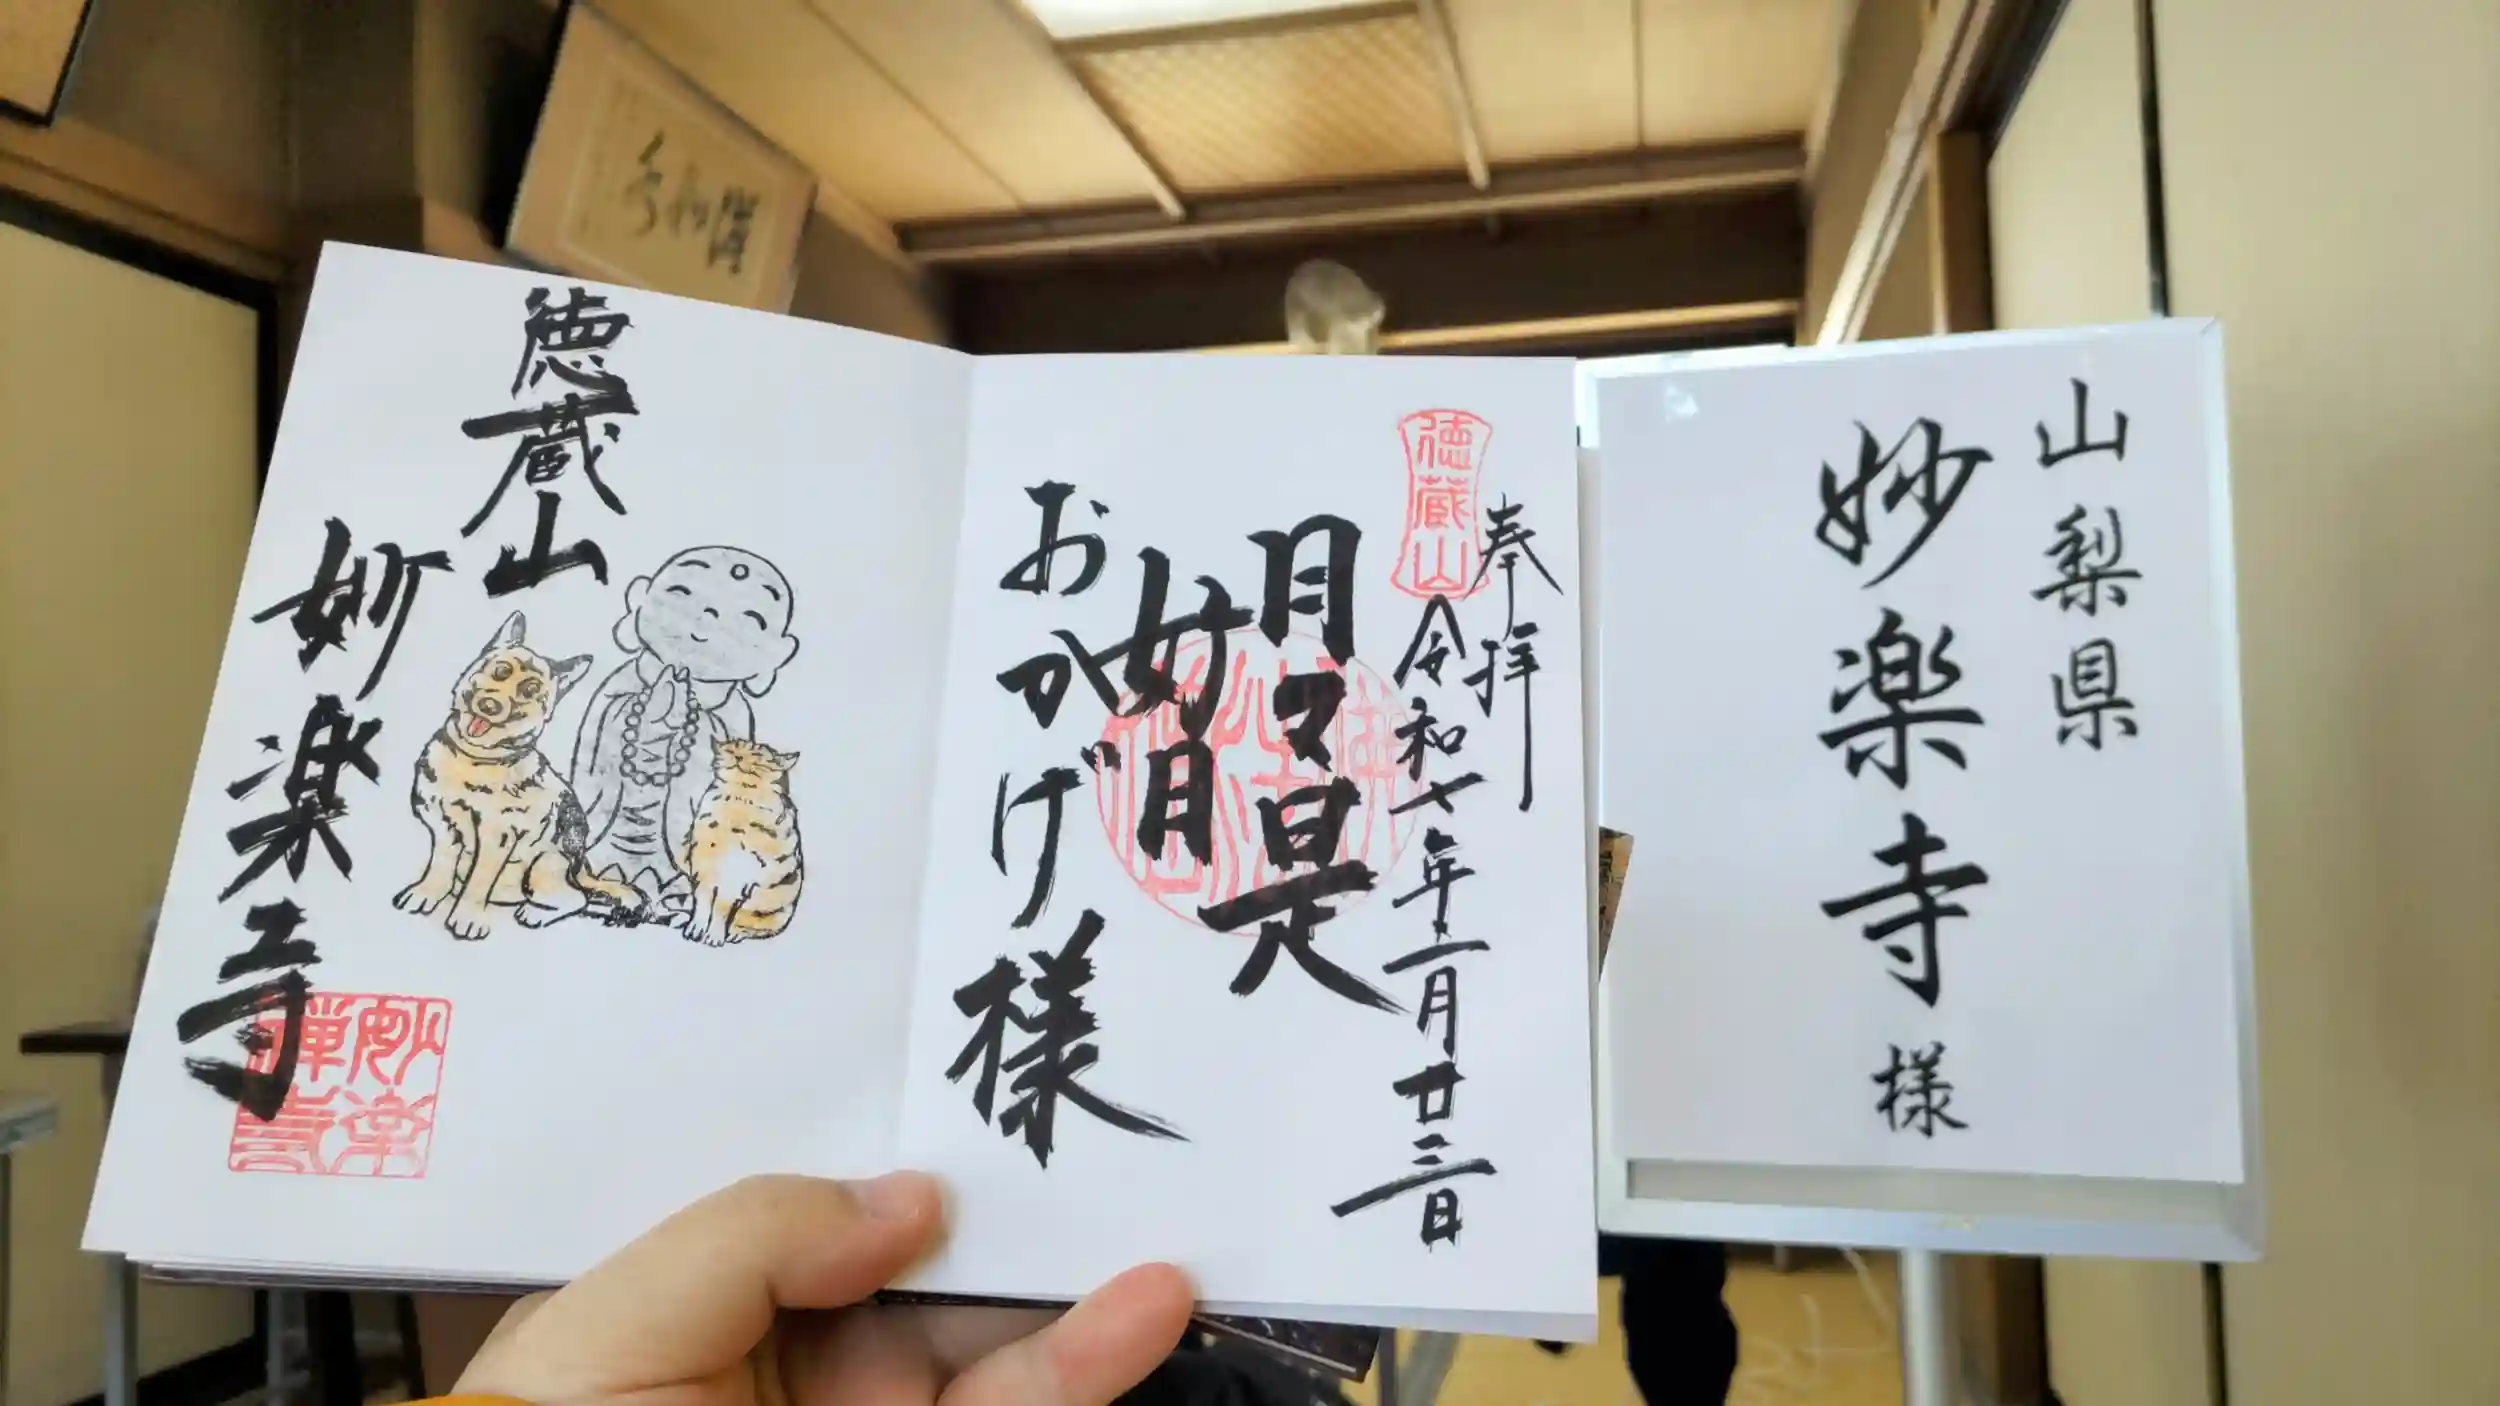 山梨県
妙楽寺様
奉拝
徳蔵山
令和七年二月廿三日
月々是
好月
おかげ様
徳蔵山
妙楽寺
妙楽
禅寺